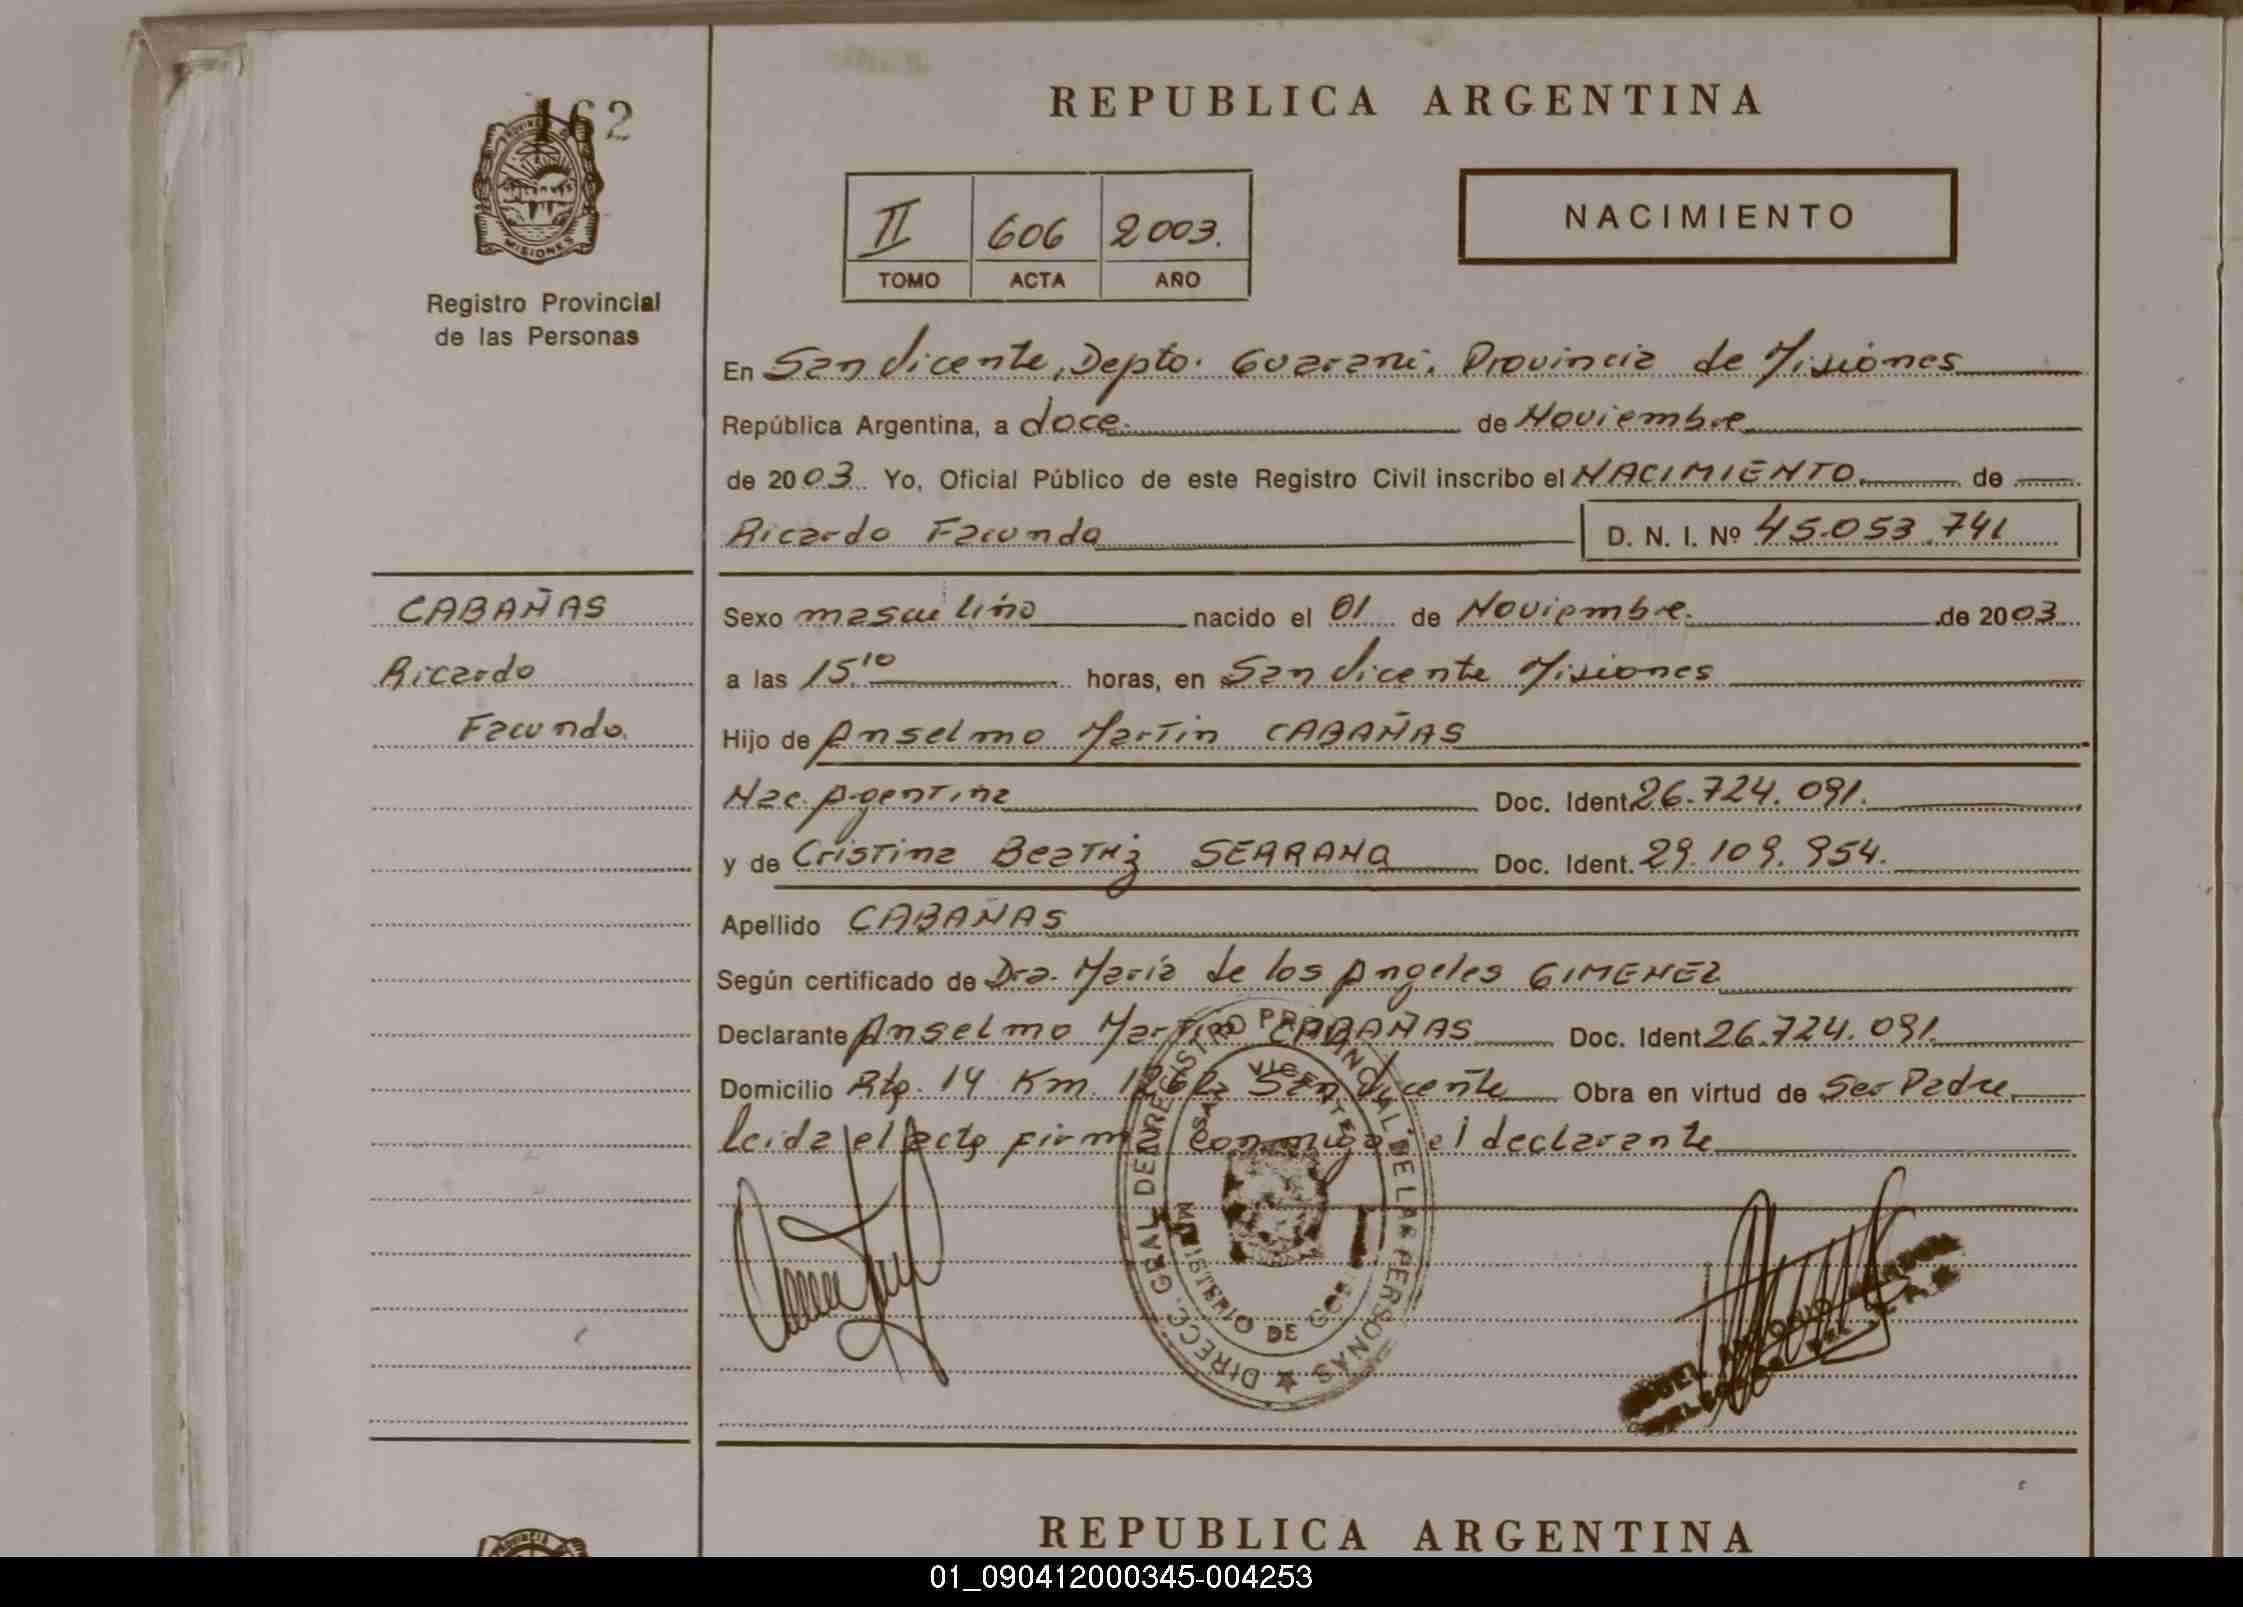 162
PROVINCIA DE
MISIONES
Registro Provincial
de las Personas
REPUBLICA ARGENTINA
II 606 2003.
TOMO ACTA AÑO
NACIMIENTO
En San Vicente, Depto. Guarani, Provincia de Misiones
República Argentina, a doce. de Noviembre
de 2003 Yo, Oficial Público de este Registro Civil inscribo el NACIMIENTO. de
Ricardo Facundo D. N. I. Nº 45.053.741
CABAÑAS
Ricardo
Facundo.
Sexo masculino nacido el 01 de Noviembre. de 2003
a las 15.10 horas, en San Vicente Misiones
Hijo de Anselmo Martin CABAÑAS
Nac. Argentina Doc. Ident. 26.724.091.
y de Cristina Beatriz SERRANO Doc. Ident. 29.109.954.
Apellido CABAÑAS
Según certificado de Dra. María de los Angeles GIMENEZ
Declarante Anselmo Martin CABAÑAS Doc. Ident 26.724.091.
Domicilio Rta. 14 Km. San Vicente Obra en virtud de Ser Padre
leida el acta firma conmigo el declarante
DIRECC. GRAL DEL REGISTRO PROVINCIAL DE LAS PERSONAS
SAN VICENTE
MINISTERIO DE GOB
REPUBLICA ARGENTINA
01_090412000345-004253